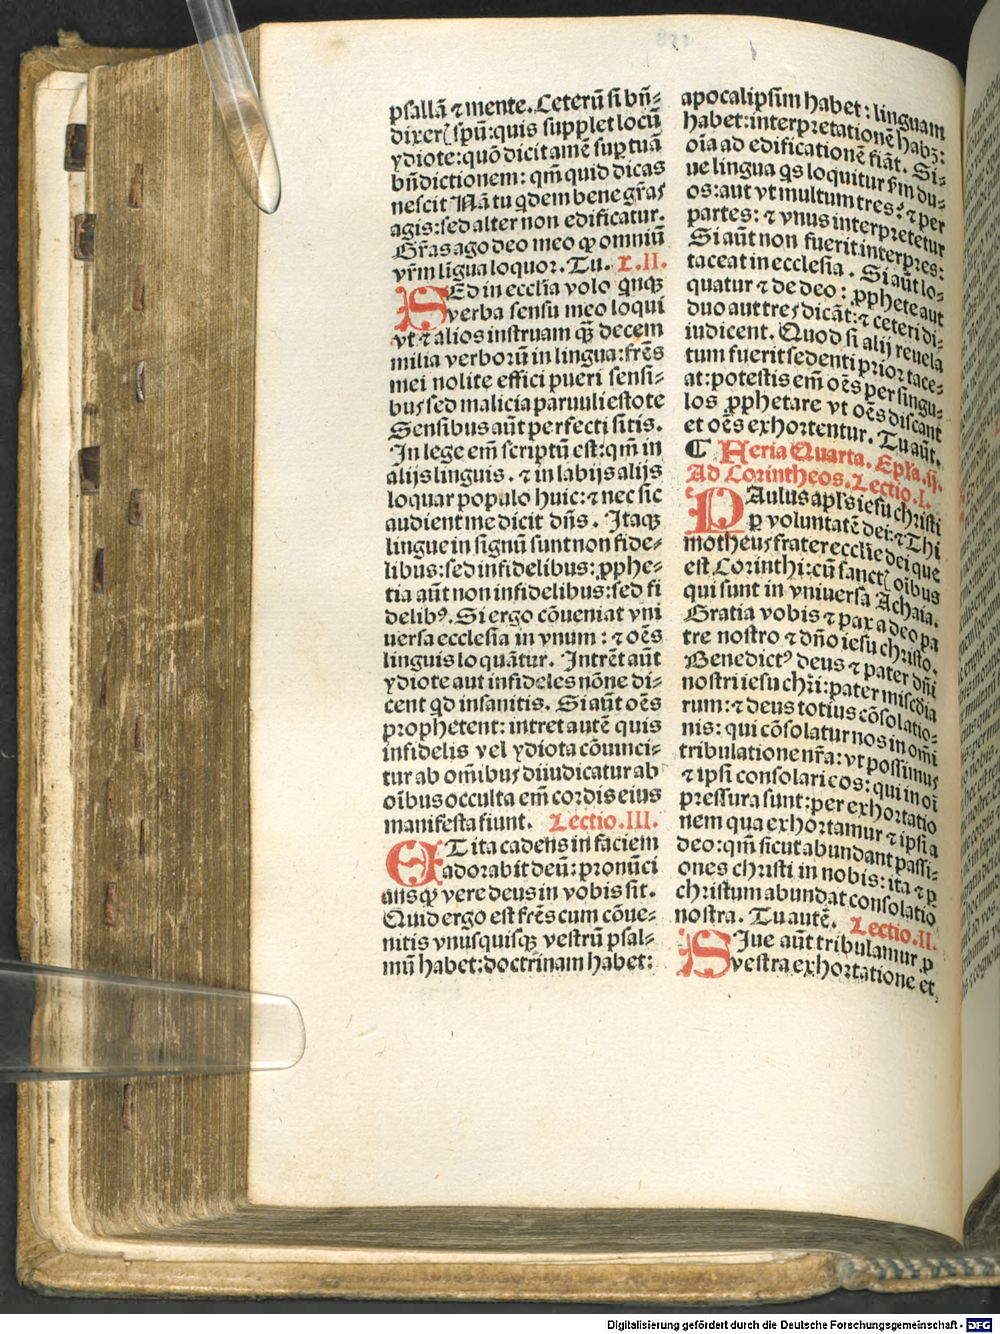 psallā ⁊ mente. Ceterū si bn̄-
dixerꝭ spū: quis supplet locū
ydiote: quō dicit amē sup tuā
bn̄dictionem: qm̄ quid dicas
nescit Nā tu qdem bene gr̄as
agis: sed alter non edificatur.
Gr̄as ago deo meo ꝙ omniū
vr̄m lingua loquor. Tu. L.II.
SEd in eccl̄ia volo qnqꝫ
verba sensu meo loqui
vt ⁊ alios instruam qꝫ decem
milia verborū in lingua: fr̄es
mei nolite effici pueri sensi-
bus sed malicia paruuli estote
Sensibus aūt perfecti sitis.
In lege em̄ scriptū est: qm̄ in
alijs linguis. ⁊ in labijs alijs
loquar populo huic: ⁊ nec sic
audient me dicit dn̄s. Itaqꝫ
lingue in signū sunt non fide-
libus: sed infidelibus: ꝓphe-
tia aūt non infidelibus: sed fi
delibꝰ. Si ergo cōueniat vni
uersa ecclesia in vnum: ⁊ oēs
linguis loquātur. Intrēt aūt
ydiote aut infideles nōne di-
cent qd insanitis. Si aūt oēs
prophetent: intret autē quis
infidelis vel ydiota cōuinci-
tur ab om̄ibus dijudicatur ab
oībus occulta em̄ cordis eius
manifesta fiunt. Lectio.III.
ET ita cadens in faciem
adorabit deū: pronūci
ans ꝙ vere deus in vobis sit.
Quid ergo est fr̄es cum cōue-
nitis vnusquisqꝫ vestrū psal-
mū habet: doctrinam habet:
apocalipsim habet: linguam
habet: interpretationē habꝫ:
oīa ad edificationē fiāt. Si-
ue lingua qs loquitur sm̄ du-
os: aut vt multum tres: ⁊ per
partes: ⁊ vnus interpretetur
Si aūt non fuerit interpres:
taceat in ecclesia. Si aūt lo-
quatur ⁊ de deo: ꝓphete aut
duo aut tres dicāt: ⁊ ceteri di-
iudicent. Quod si alij reuela
tum fuerit sedenti prior tace-
at: potestis em̄ oēs per singu-
los ꝓphetare vt oēs discant
et oēs exhortentur. Tu aūt.
¶ Feria Quarta. Epl̄a.ij.
Ad Corintheos. Lectio.I.
PAulus apl̄s iesu christi
ꝑ voluntatē dei: ⁊ Thi
motheus frater eccl̄ie dei que
est Corinthi: cū sanctꝭ oībus
qui sunt in vniuersa Achaia.
Gratia vobis ⁊ pax a deo pa
tre nostro ⁊ dn̄o iesu christo.
Benedictꝰ deus ⁊ pater dn̄i
nostri iesu chr̄i: pater miscd̄ia
rum: ⁊ deus totius cōsolatio-
nis: qui cōsolatur nos in om̄i
tribulatione nr̄a: vt possimus
⁊ ipsi consolari eos: qui in oī
pressura sunt: per exhortatio
nem qua exhortamur ⁊ ipsi a
deo: qm̄ sicut abundant passi-
ones christi in nobis: ita ⁊ ꝑ
christum abundat consolatio
nostra. Tu autē. Lectio.II.
SIue aūt tribulamur ꝑ
vestra exhortatione et
Digitalisierung gefördert durch die Deutsche Forschungsgemeinschaft - DFG